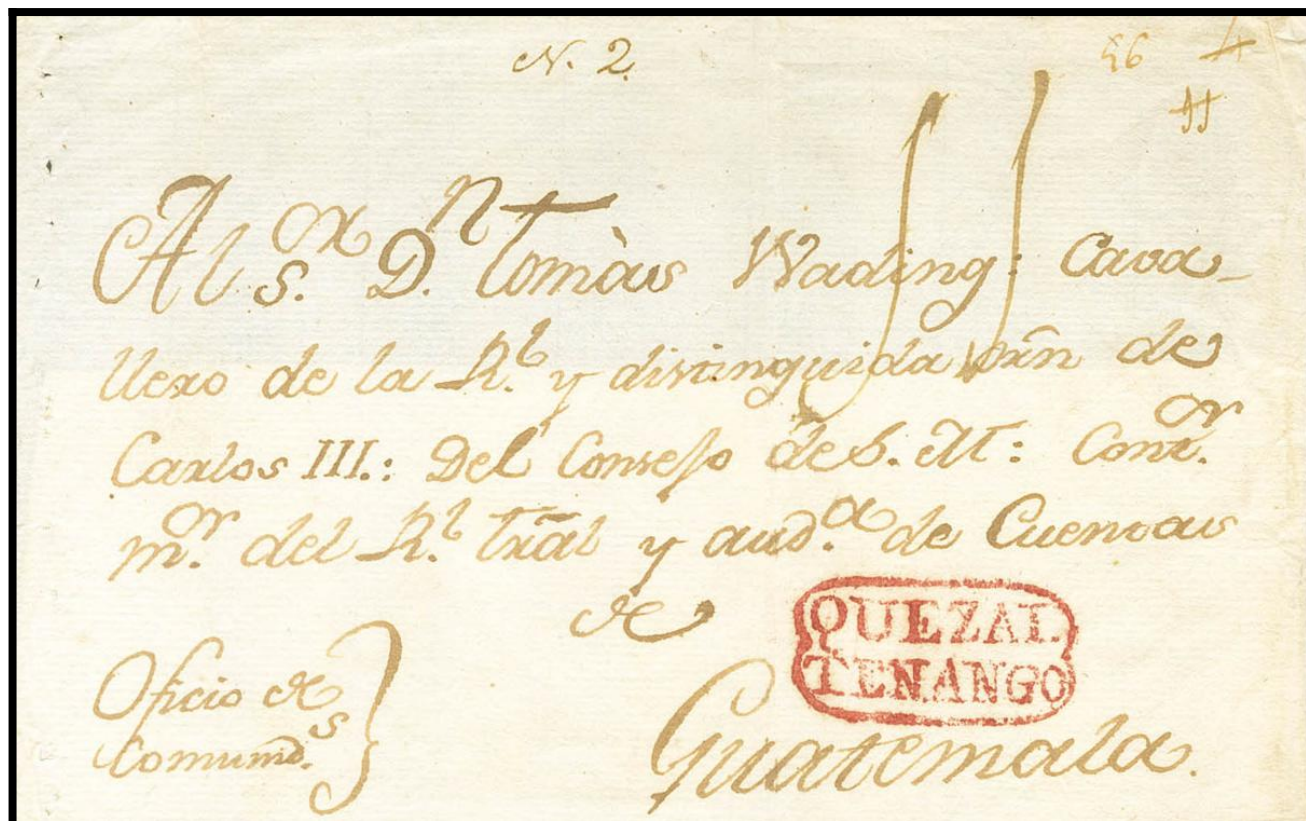 N. 2.
56 4
Al S.or D.n Tomàs Wading: Cava-
llero de la R.l y distinguida orn̄ de
Carlos III.: Del Consejo de S. M: Cont.or
m.or del R.l trāl y aud.a de Cuentas
de
QUEZAL
TENANGO
Guatemala.
Oficio de
Comunid.s